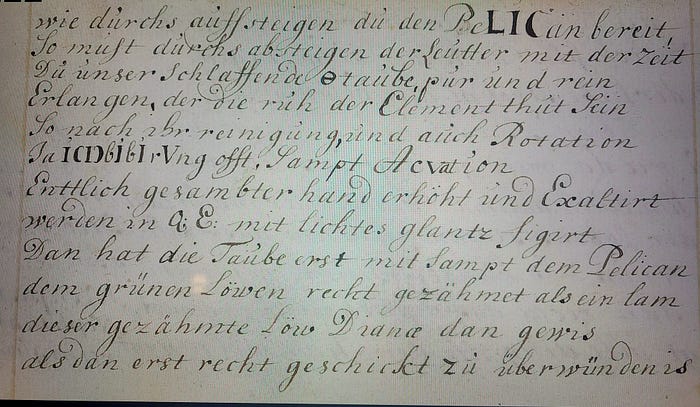 wie dúrchs aúffsteigen dú den PeLICan bereit,
So múst dúrchs absteigen der Leútter mit der zeit
Dú únser schlaffende ⊖ taúbe, púr únd rein
Erlangen, der die rúh der Element thút Sein
So nach ihr reinigúng, únd aúch Rotation
offt, Sampt Acvation
Enttlich gesambter hand erhöht únd Exaltirt
werden in Q: E: mit lichtes glantz figirt
Dan hat die Taúbe erst mit Sampt dem Pelican
dem grúnen Löwen recht gezähmet als ein lam
dieser gezähmte Löw Dianæ dan gewis
als dan erst recht geschickt zú úberwúnden is